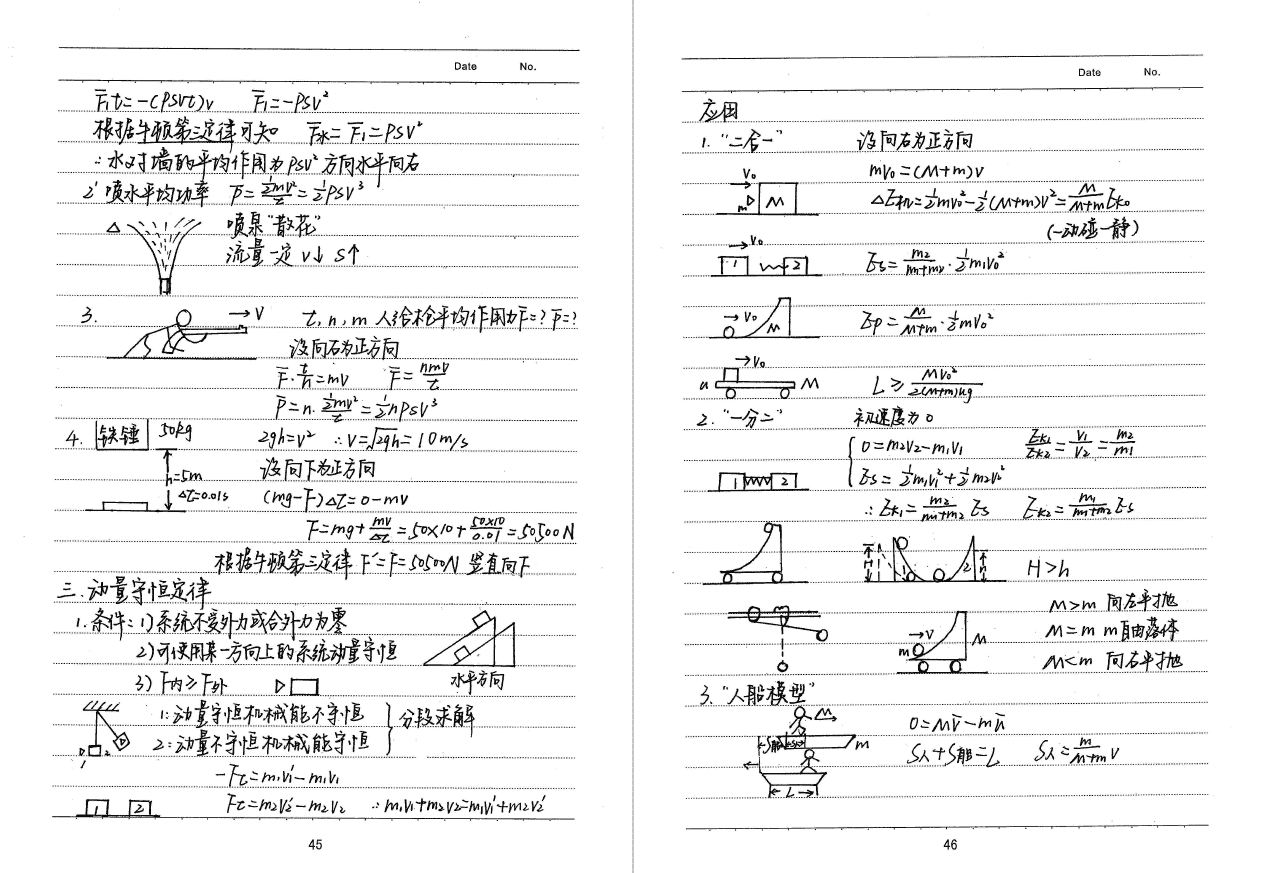 Date No.
F̄₁t=-(ρSvt)v F̄₁=-ρSv²
根据牛顿第三定律可知 F̄水=F̄₁=ρSv²
∴水对墙的平均作用为ρSv²方向水平向右
2' 喷水平均功率 P̄=½mv²/t=½ρSv³
△ 喷泉"散花"
流量一定 v↓ S↑
3. →V t, n, m 人给枪平均作用力F̄=? P̄=?
设向右为正方向
F̄·t/n=mv F̄=nmv/t
P̄=n·½mv²/t=½nρSv³
4. 铁锤 50kg 2gh=v² ∴v=√2gh=10m/s
h=5m 设向下为正方向
Δt=0.01s (mg-F)Δt=0-mv
F=mg+mv/Δt=50×10+50×10/0.01=50500N
根据牛顿第三定律 F'=F=50500N 竖直向下
三.动量守恒定律
1.条件:1)系统不受外力或合外力为零
2)可使用某一方向上的系统动量守恒
3) F内≥F外 水平方向
1:动量守恒机械能不守恒
2:动量不守恒机械能守恒
分段求解
1 2
-Ft=m₁v₁'-m₁v₁
1 2 Ft=m₂v₂'-m₂v₂ ∴m₁v₁+m₂v₂=m₁v₁'+m₂v₂'
45
Date No.
应用
1. "二合一" 设向右为正方向
V₀ mv₀=(M+m)v
m M ΔE机=½mv₀²-½(M+m)v²=M/(M+m)Ek₀
(一动碰一静)
→V₀
1 2 Es=m₂/(m₁+m₂)·½m₁v₀²
→V₀ M Ep=M/(M+m)·½mv₀²
→V₀
u M L≥Mv₀²/2(M+m)ug
2. "一分二" 初速度为0
0=m₂v₂-m₁v₁ Ek₁/Ek₂=v₁/v₂=m₂/m₁
1 2 Es=½m₁v₁²+½m₂v₂²
∴Ek₁=m₂/(m₁+m₂)Es Ek₂=m₁/(m₁+m₂)Es
H 2 h H>h
M>m 向左平抛
→V m M M=m m自由落体
M<m 向右平抛
3. "人船模型"
M 0=Mv̄-mū
S船 S人 m S人+S船=L S人=m/(M+m)V
L
46